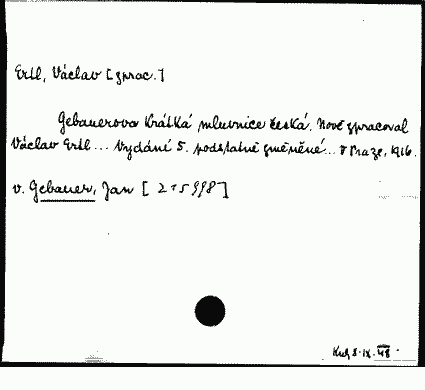 Ertl, Václav [zprac.]
Gebauerova Krátká mluvnice česká. Nově zpracoval
Václav Ertl ... Vydání 5. podstatně změněné ... V Praze, 1916.
v. Gebauer, Jan [215998]
8.IX.48